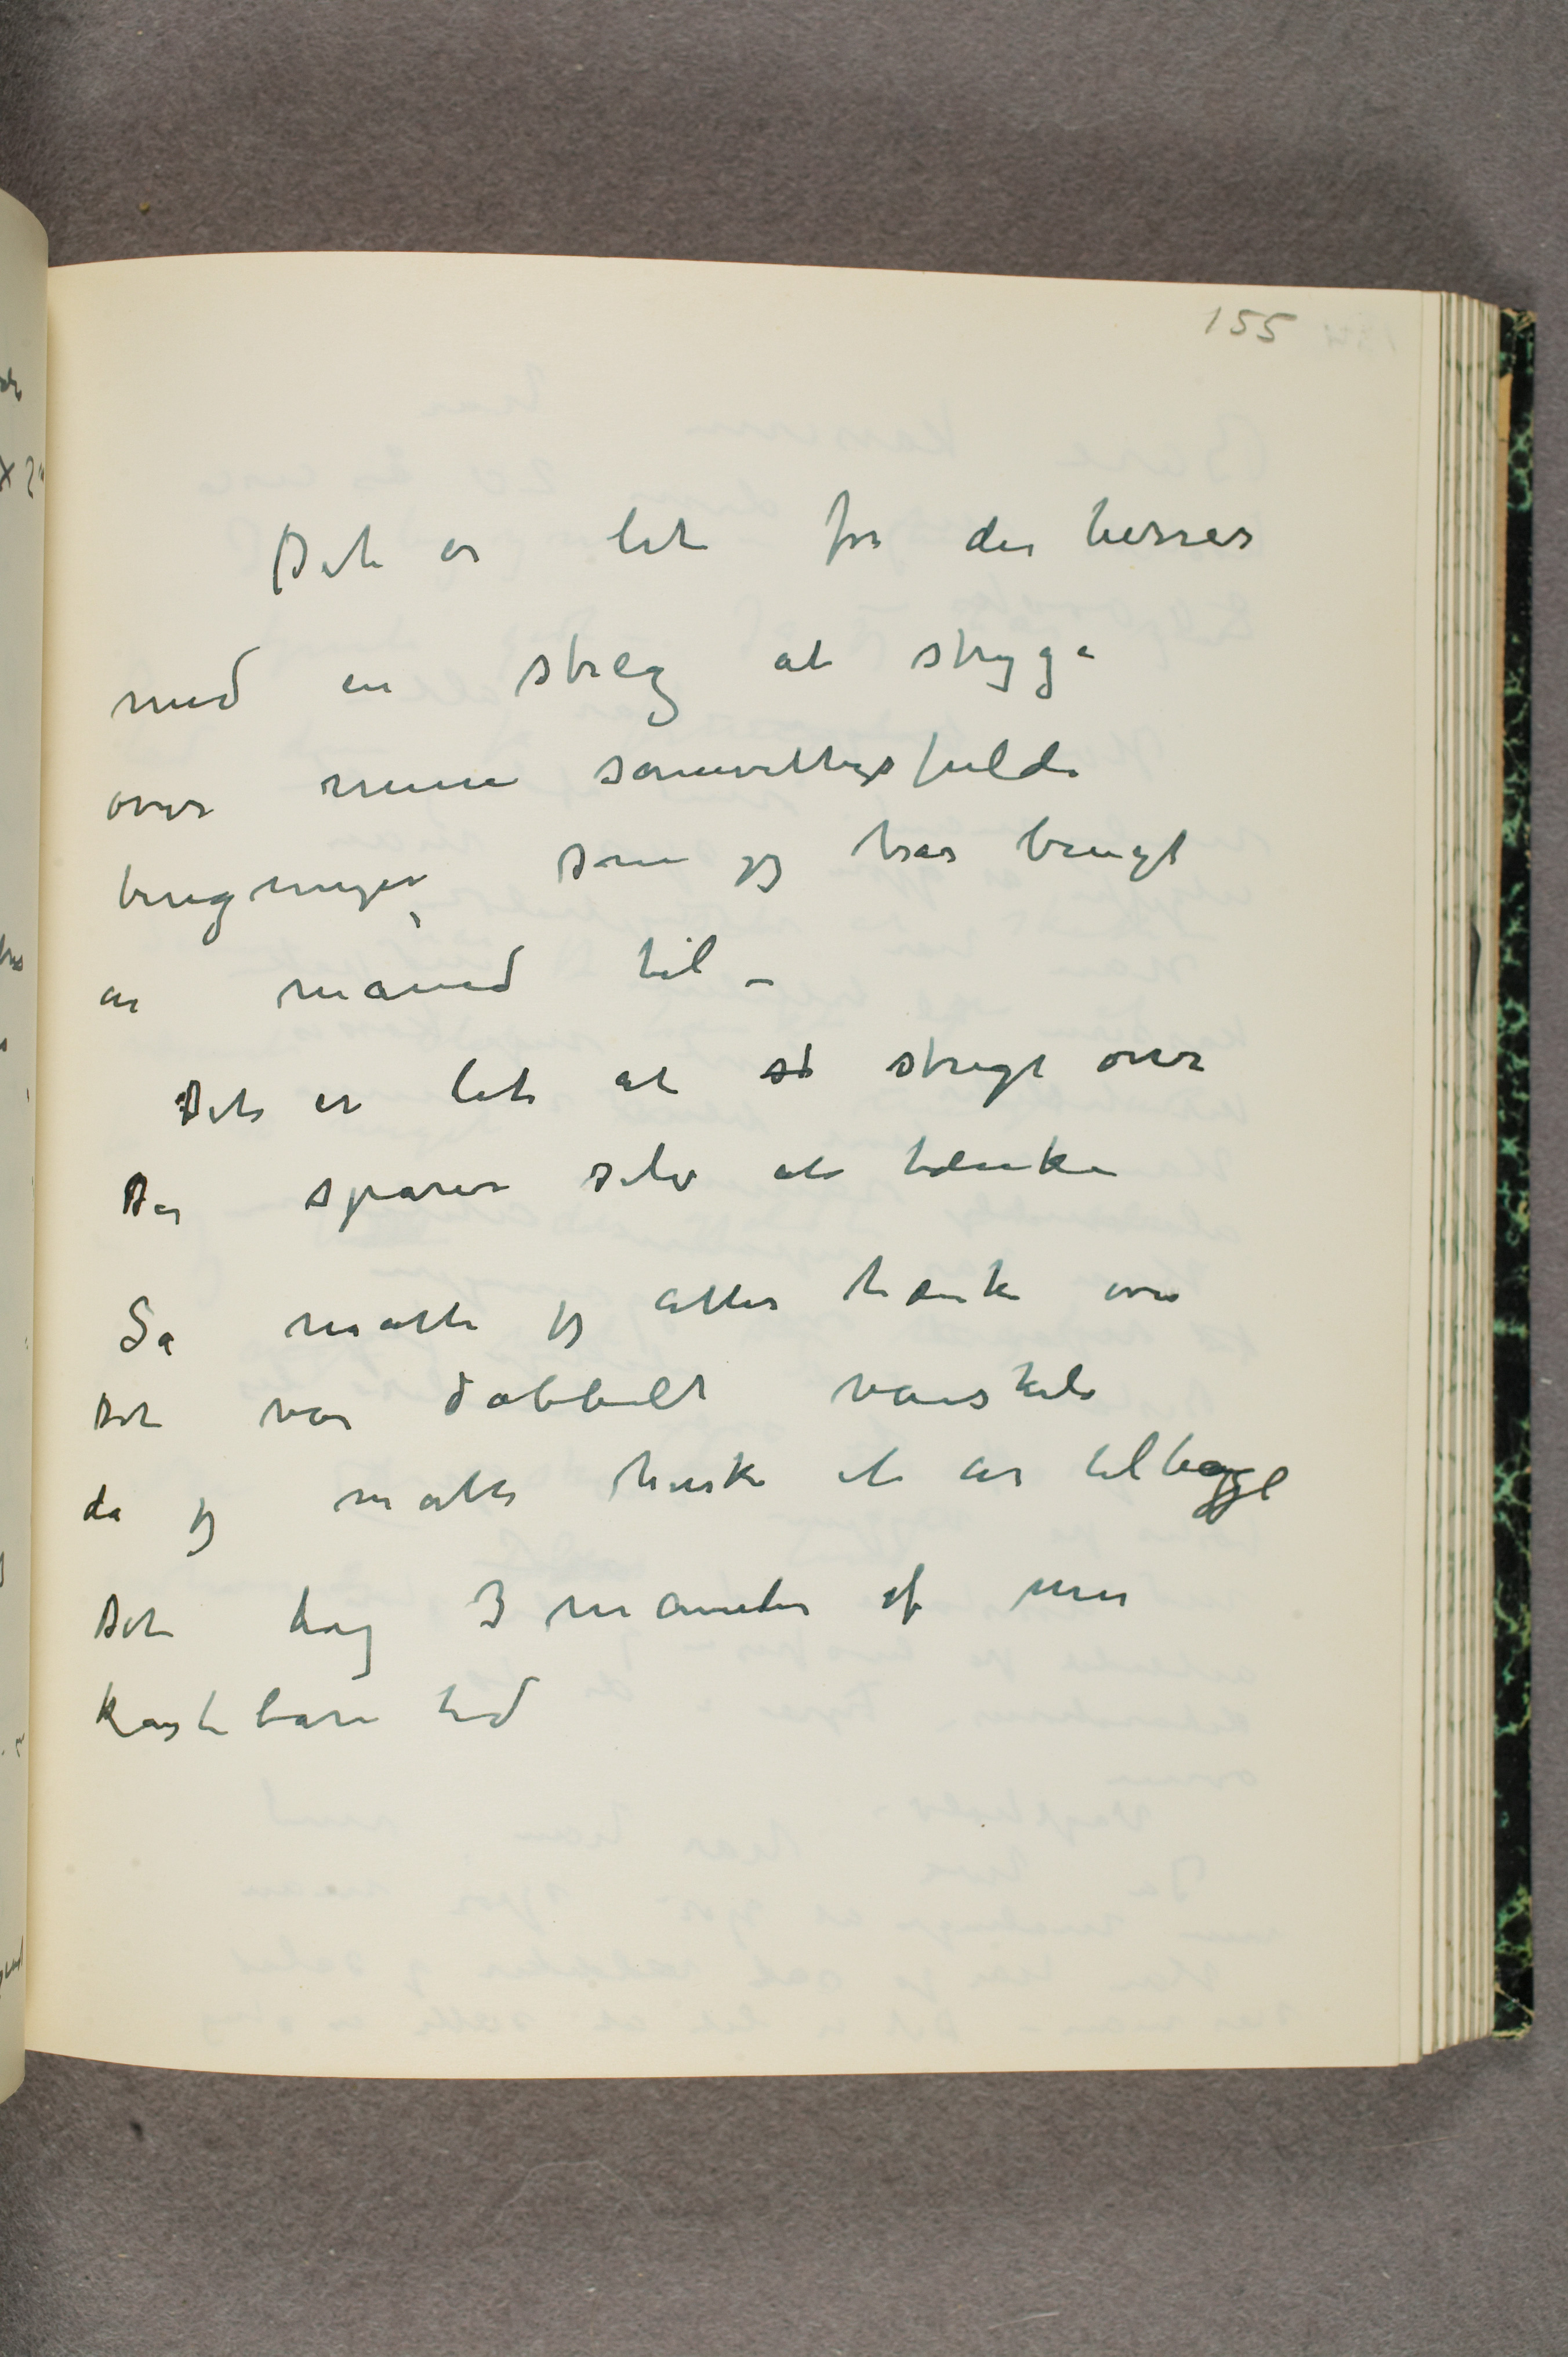 155
Det er let for de herrer
med en streg at stryge
over mine samvittighedsfulde
som jeg har brugt
en måned til –
Det er let at st stryge over
De sparer selv at tænke
Så måtte jeg atter tænke over
Det var dobbelt vanskeli
da jeg måtte huske et år tilbage
Det tog 3 måneder af min
kostbare tid